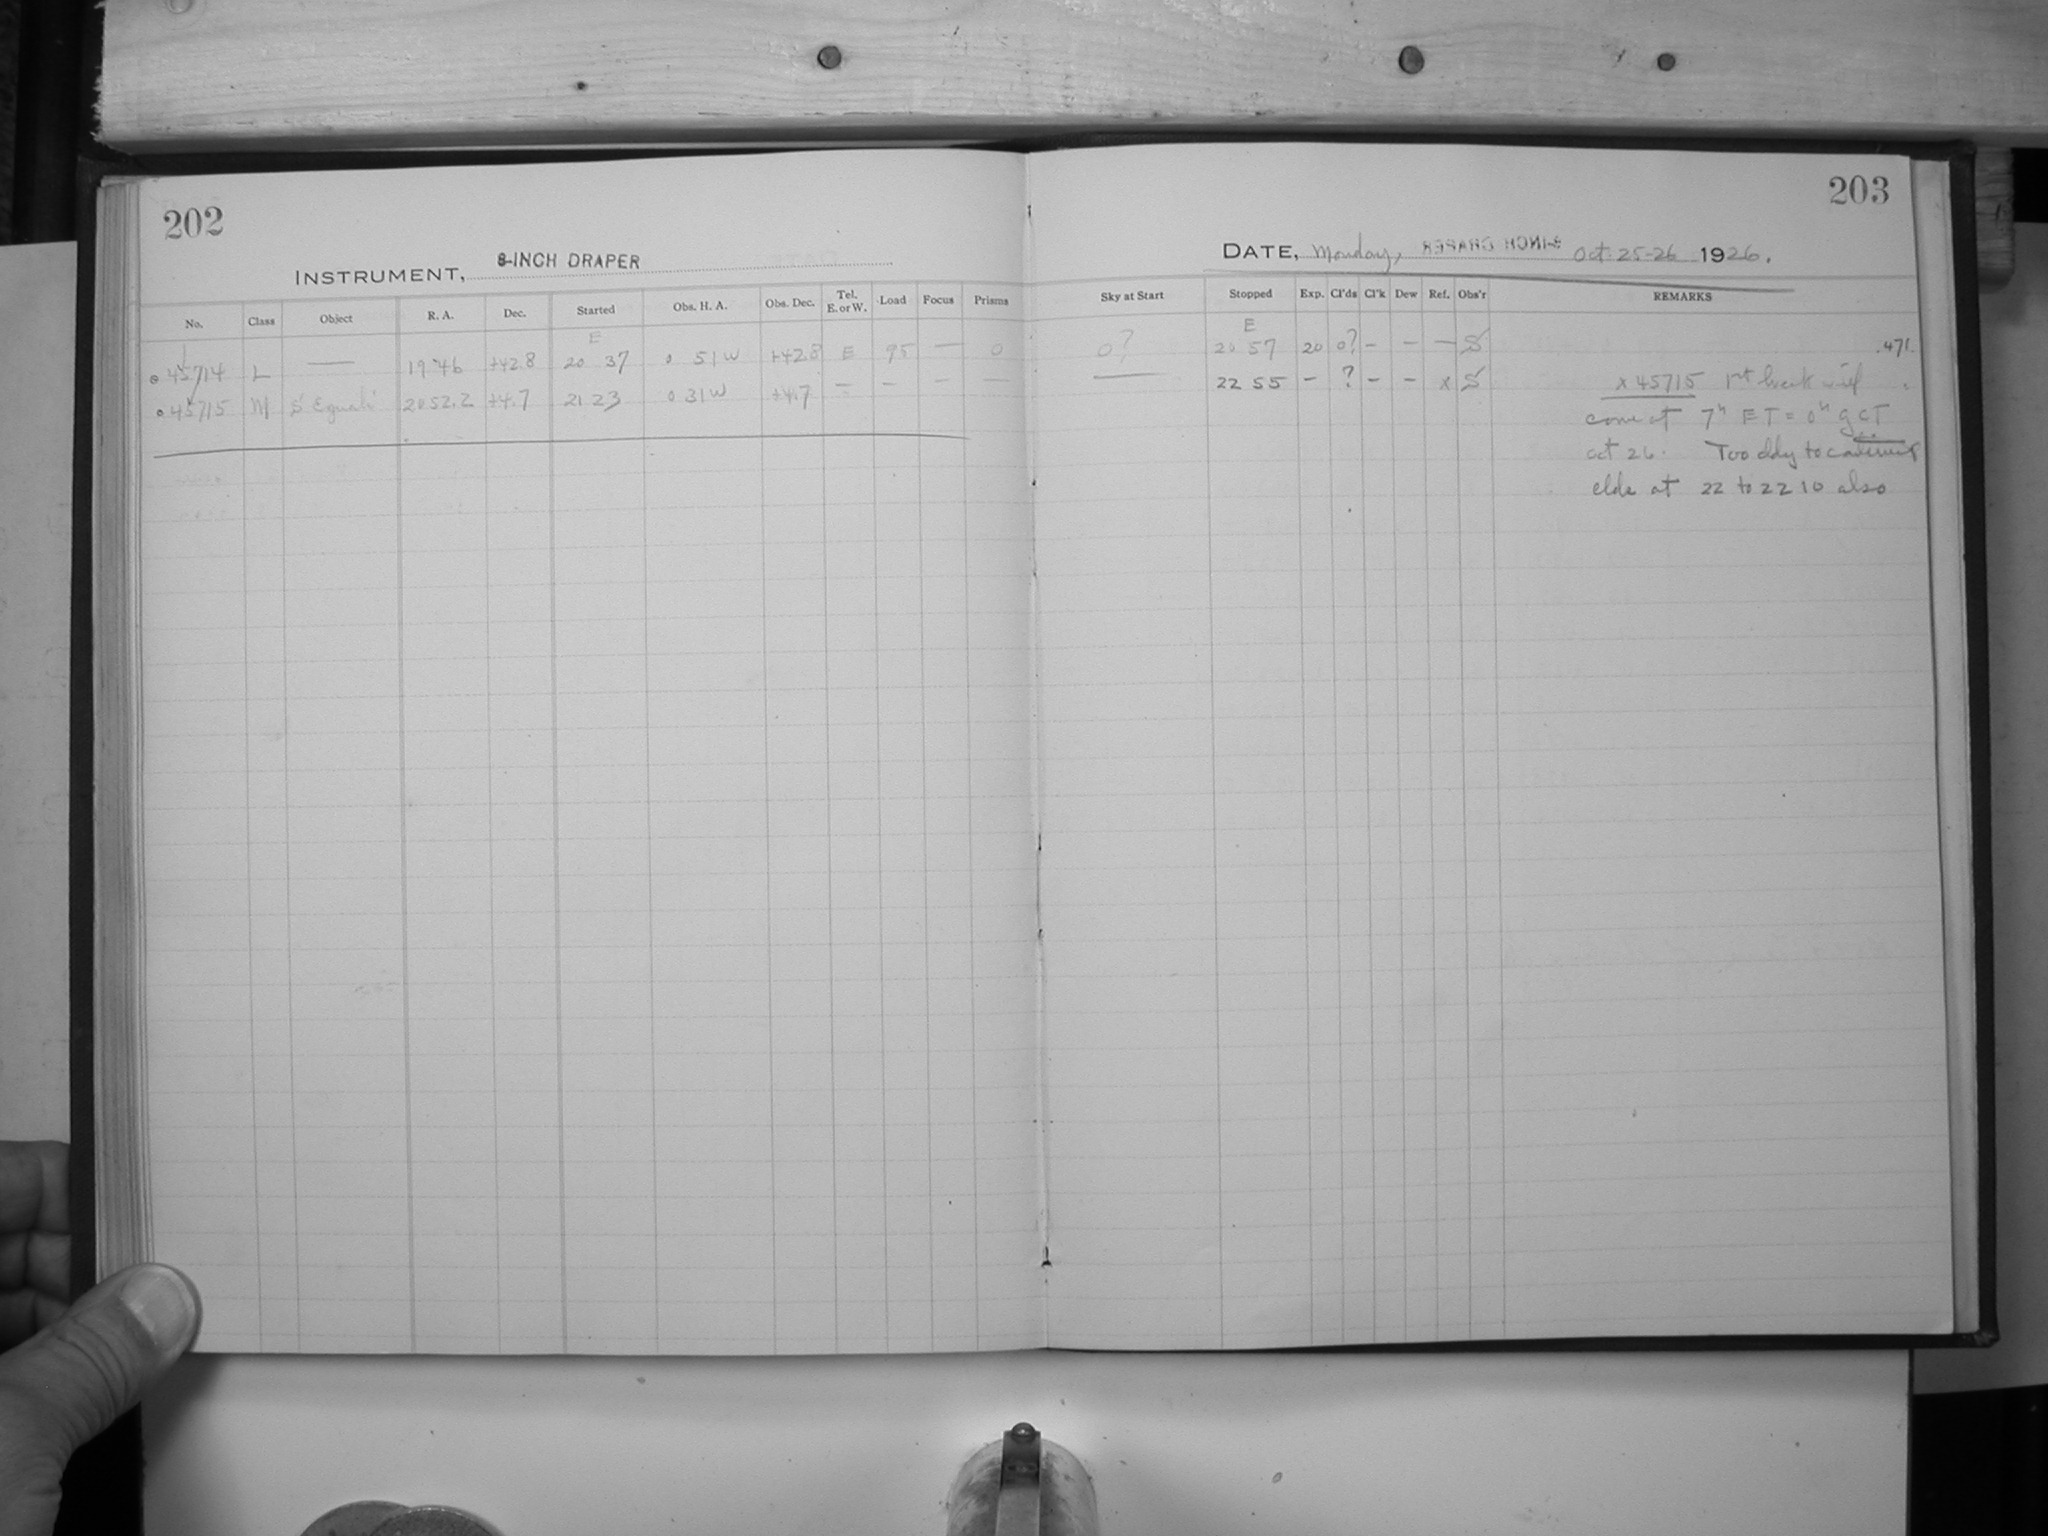 202
INSTRUMENT, 8-INCH DRAPER
No. Class Object R. A. Dec. Started Obs. H. A. Obs. Dec. Tel. E. or W. Load Focus Prisms
E
45714 L — 19 46 +42.8 20 37 0 51 W +42.8 E 95 — 0
45715 M S Equulei 20 52.2 +4.7 21 23 0 31 W +4.7 – – – —
203
DATE, Monday, 8-INCH DRAPER Oct. 25-26 1926.
Sky at Start Stopped Exp. Cl'ds Cl'k Dew Ref. Obs'r REMARKS
E
0? 20 57 20 0? – – — S .471.
— 22 55 – ? – – x S x 45715 1st break will
come at 7h ET = 0h GCT
Oct 26. Too cldy to continue
clds at 22 to 22 10 also